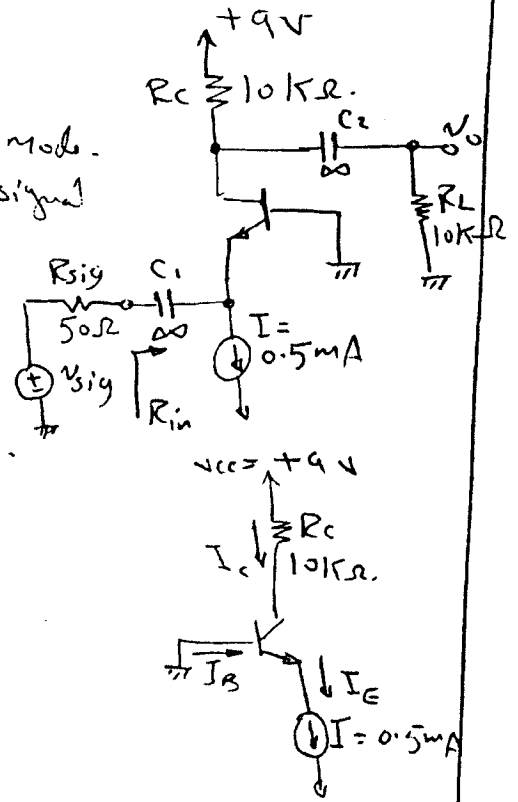 +9V
Rc 10KΩ.
C2
Mode.
∞
Vo
signal
RL
10KΩ
Rsig
C1
50Ω
∞
I =
0.5mA
Vsig
Rin
Vcc = +9 V
Rc
Ic
10KΩ.
IB
IE
I = 0.5mA